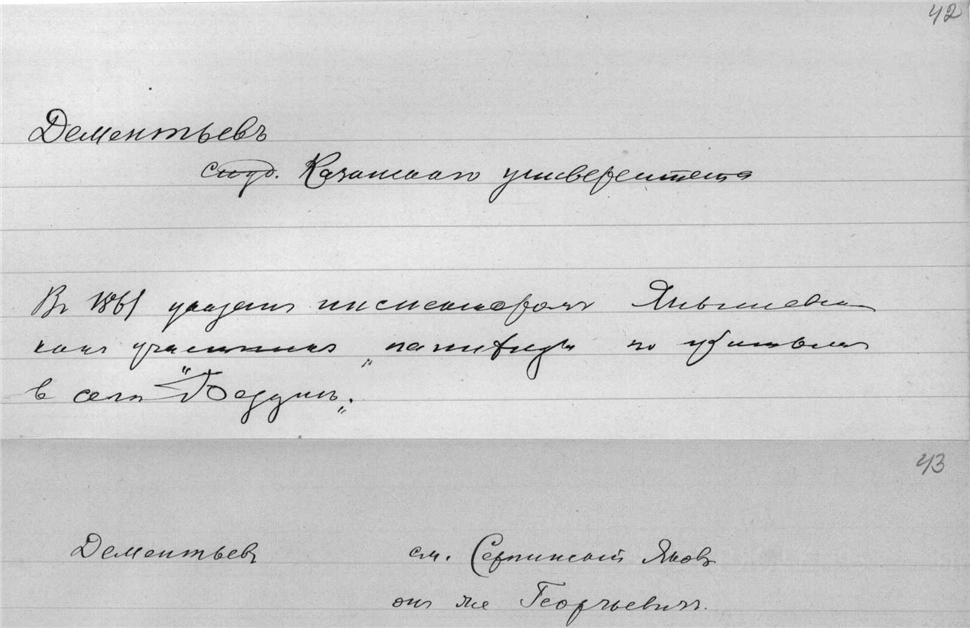 42
Дементьевъ
студ. Казанского университета
В 1861 указан инспектором Янышевским
как участник „панихиды" по убитым
в селе „Бездна".
43
Дементьев см. Серпинский Яков
он же Георгьевич.